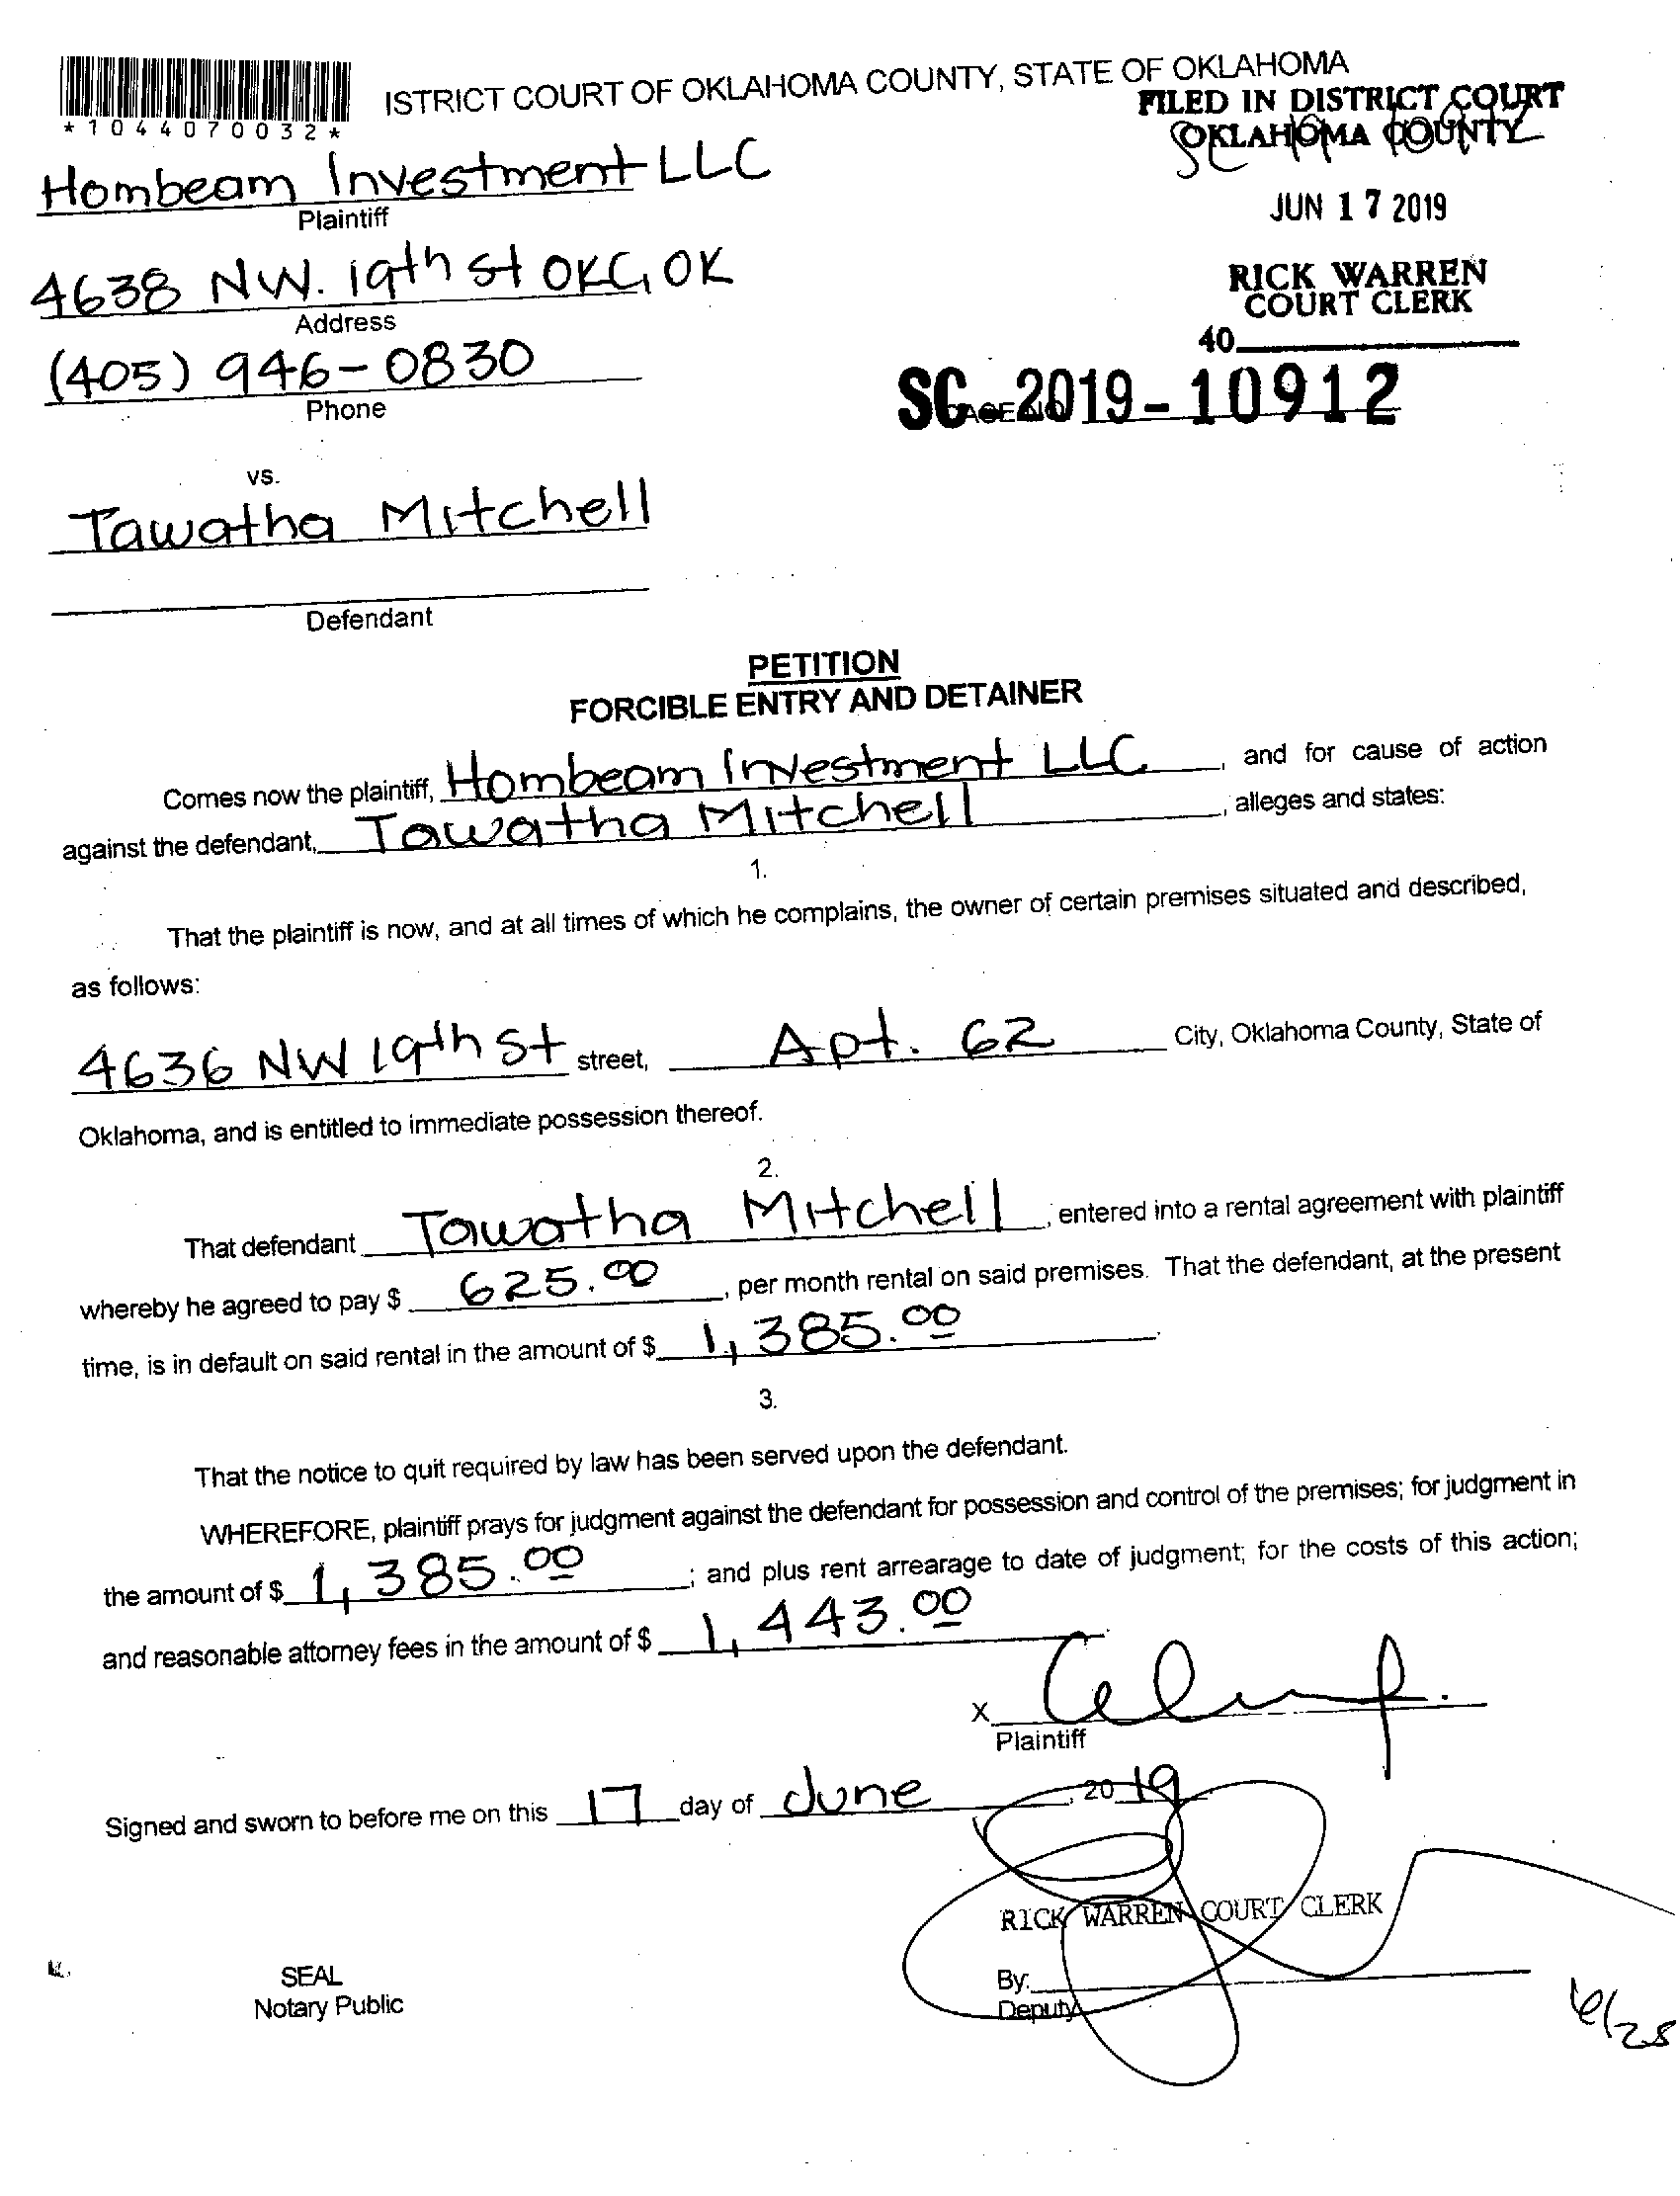 ISTRICT COURT OF OKLAHOMA COUNTY, STATE OF OKLAHOMA
*1044070032*
FILED IN DISTRICT COURT
OKLAHOMA COUNTY
Hombeam Investment LLC
Plaintiff
JUN 17 2019
4638 NW. 19th st OKC, OK
Address
RICK WARREN
COURT CLERK
40
(405) 946-0830
Phone
SC-2019-10912
vs.
Tawatha Mitchell
Defendant
PETITION
FORCIBLE ENTRY AND DETAINER
Comes now the plaintiff, Hombeam Investment LLC, and for cause of action
against the defendant, Tawatha Mitchell, alleges and states:
1.
That the plaintiff is now, and at all times of which he complains, the owner of certain premises situated and described,
as follows:
4636 NW 19th St street, Apt. 62 City, Oklahoma County, State of
Oklahoma, and is entitled to immediate possession thereof.
2.
That defendant Tawatha Mitchell, entered into a rental agreement with plaintiff
whereby he agreed to pay $ 625.00, per month rental on said premises. That the defendant, at the present
time, is in default on said rental in the amount of $ 1,385.00.
3.
That the notice to quit required by law has been served upon the defendant.
WHEREFORE, plaintiff prays for judgment against the defendant for possession and control of the premises; for judgment in
the amount of $ 1,385.00; and plus rent arrearage to date of judgment; for the costs of this action;
and reasonable attorney fees in the amount of $ 1,443.00.
X
Plaintiff
Signed and sworn to before me on this 17 day of June, 2019
RICK WARREN COURT CLERK
SEAL
Notary Public
By:
Deputy
6/28